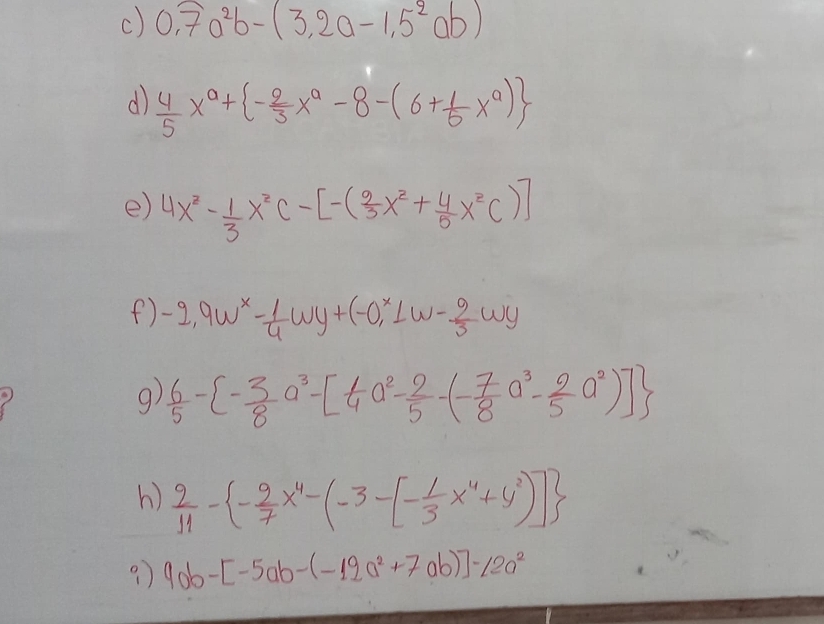 c) 0,7a²b-(3,2a-1,5²ab)
d) 4/5 xᵃ+{-2/3 xᵃ-8-(6+1/6 xᵃ)}
e) 4x²-1/3 x²c-[-(2/3 x²+4/5 x²c)]
f) -2,9wˣ-1/4 wy+(-0,ˣ1w-2/3 wy
g) 6/5-{-3/8 a³-[1/4 a²-2/5-(-7/8 a³-2/5 a²)]}
h) 2/11-{-2/7 x⁴-(-3-[-1/3 x⁴+y²)]}
i) 9ab-[-5ab-(-12a²+7ab)]-12a²